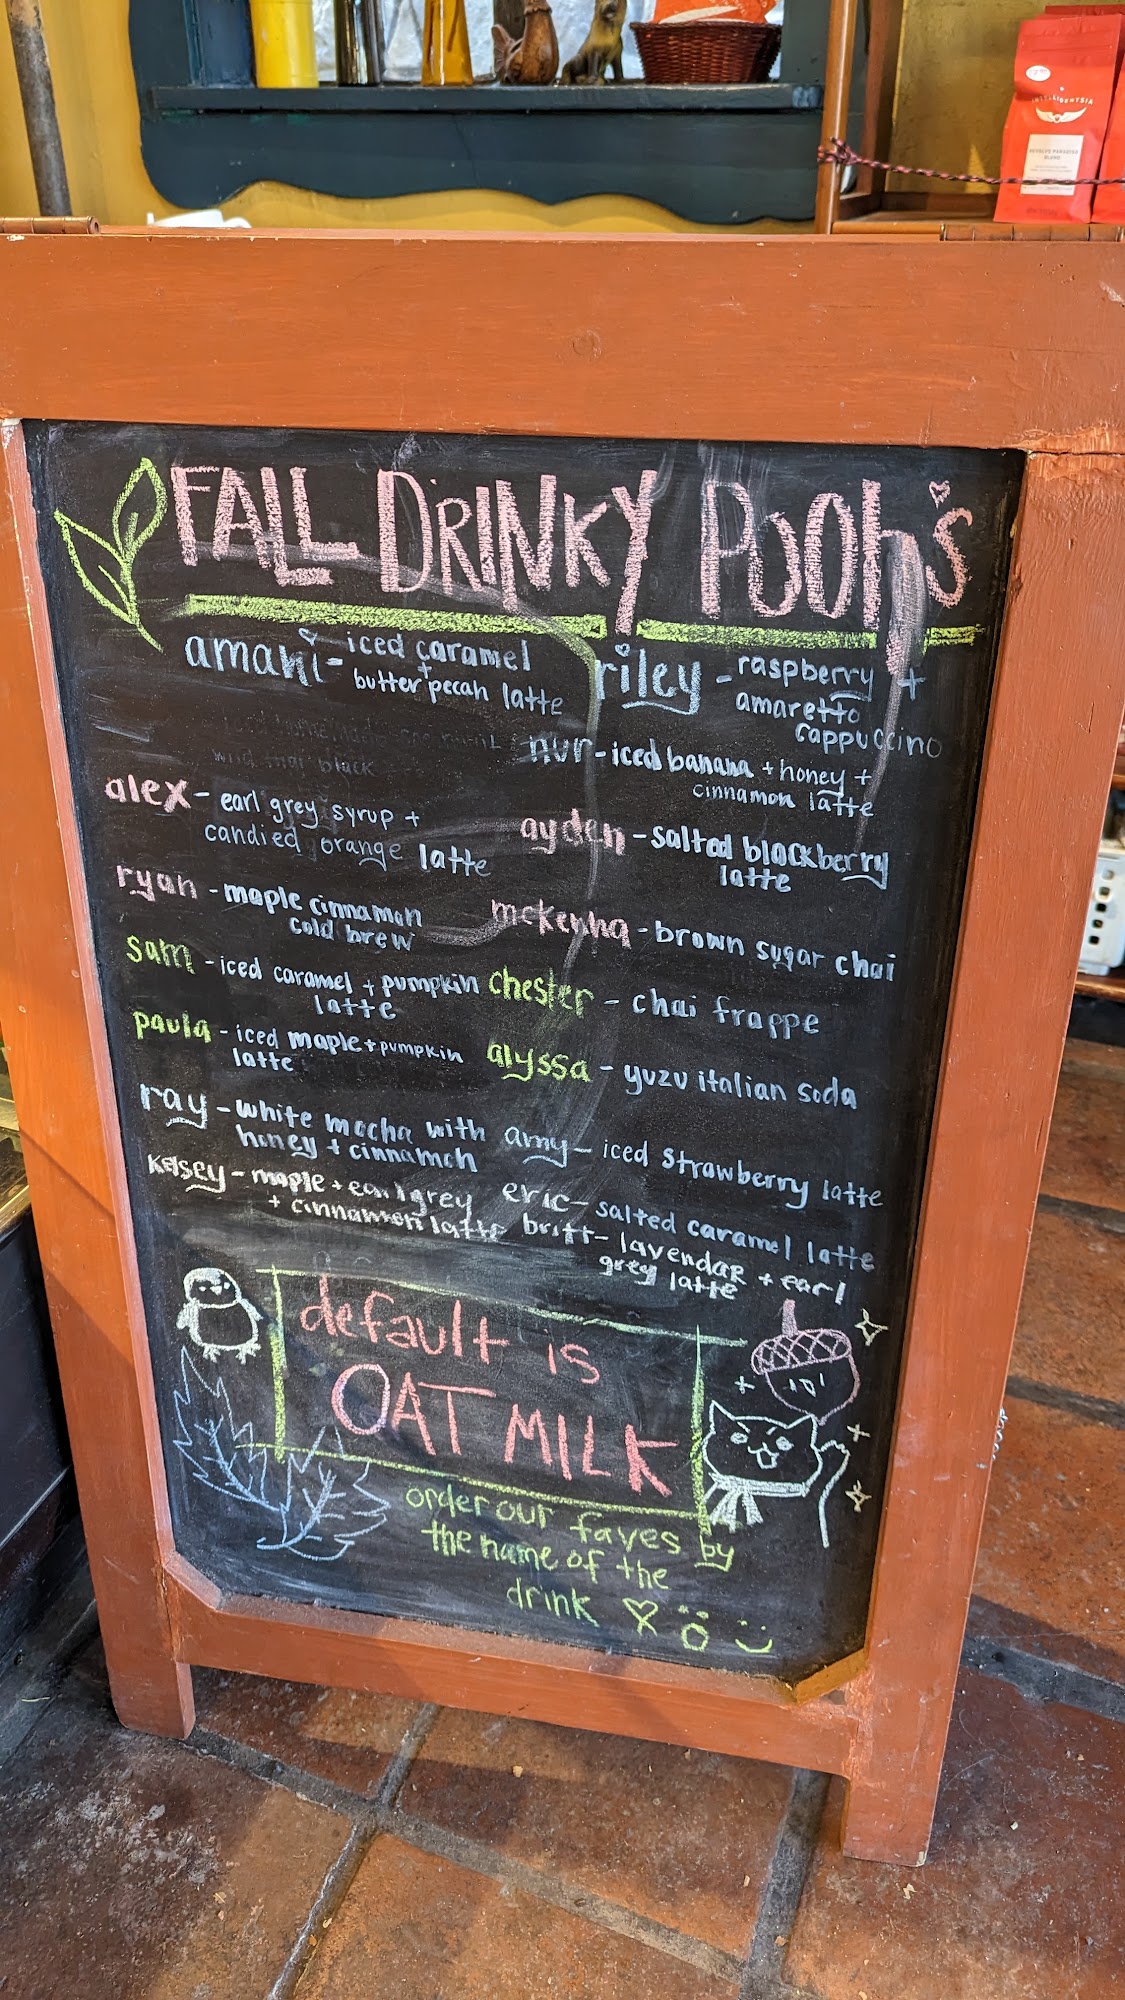 INTELLIGENTSIA
BLEND
FALL DRINKY POOh's
amani - iced caramel
+
butter pecan latte
alex - earl grey syrup +
candied orange latte
ryan - maple cinnamon
cold brew
sam - iced caramel + pumpkin
latte
paula - iced maple + pumpkin
latte
ray - white mocha with
honey + cinnamon
kelsey - maple + earl grey
+ cinnamon latte
riley - raspberry +
amaretto
cappuccino
nur - iced banana + honey +
cinnamon latte
ayden - salted blackberry
latte
mckenna - brown sugar chai
chester - chai frappe
alyssa - yuzu italian soda
amy - iced strawberry latte
eric - salted caramel latte
britt - lavendar + earl
grey latte
default is
OAT MILK
order our faves by
the name of the
drink